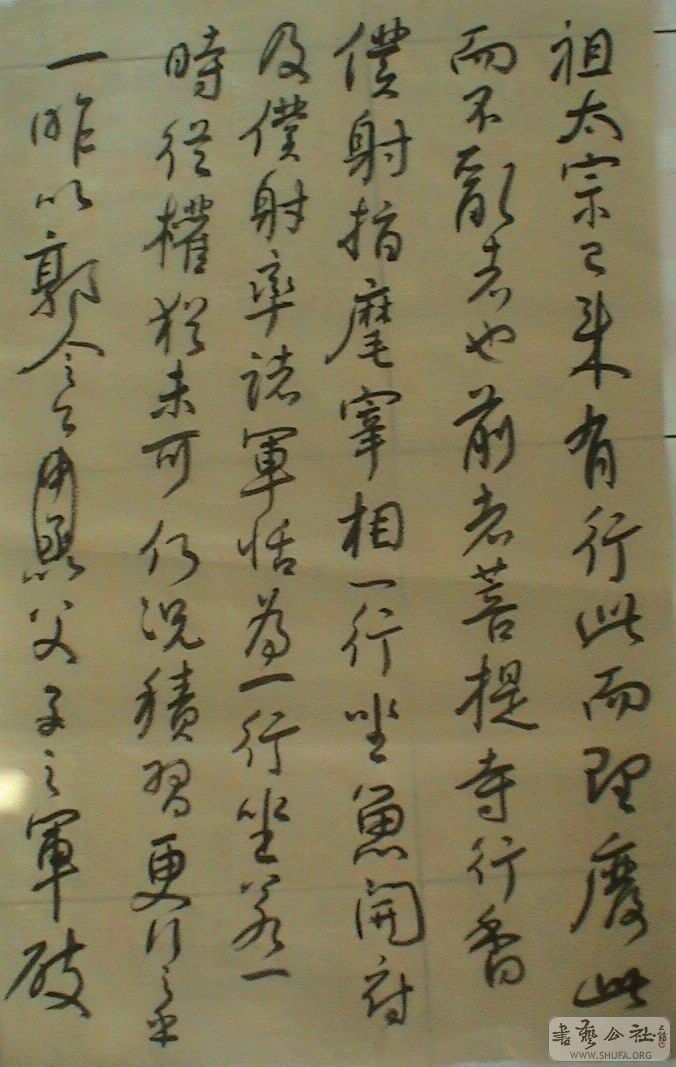 祖太宗已來有行此而理廢此
而不亂者也前者菩提寺行香
僕射指麾宰相一行坐魚開府
及僕射率諸軍為一行坐若一
時從權猶未可何況積習更行之乎
一昨以郭令公父子之軍破
書藝公社
WWW.SHUFA.ORG